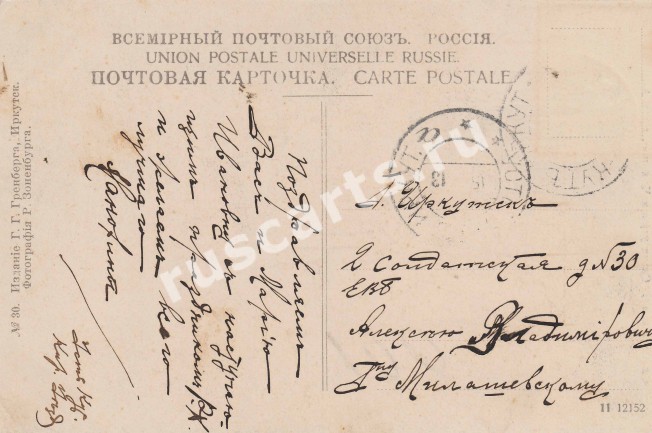 ВСЕМІРНЫЙ ПОЧТОВЫЙ СОЮЗЪ. РОССІЯ.
UNION POSTALE UNIVERSELLE RUSSIE.
ПОЧТОВАЯ КАРТОЧКА. CARTE POSTALE
№ 30. Изданіе Г. Г. Гренберга, Иркутск.
Фотографія Р. Зоненбурга.
Поздравляемъ
Васъ и Марію
Ивановну съ наступаю-
щимъ праздникомъ Р.Х.
и желаемъ всего
лучшаго
г. Иркутскъ
2 Солдатская д № 30
ЕВБ
Алексѣю Владиміровичу
Гну Милашевскому
11 12152
ruscarts.ru